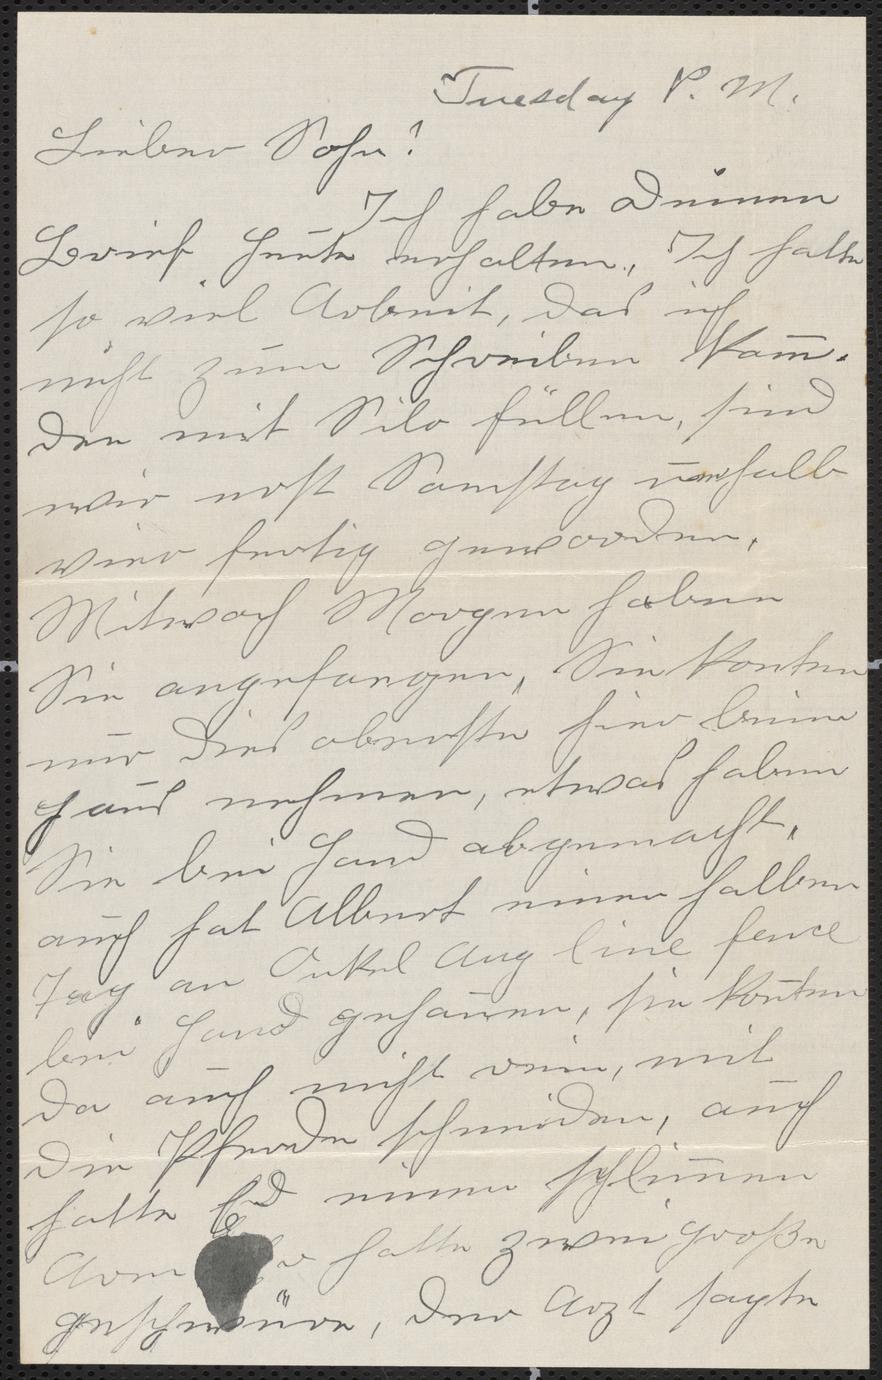 Tuesday P. M.
Lieber Sohn!
Ich habe Deinen
Brief heute erhalten, Ich hatte
so viel Arbeit, das ich
nicht zum Schreiben kam̅.
den mit Silo füllen, sind
wir erst Samstag halb
vier fertig geworden,
Mitwoch Morgen haben
Sie angefangen, Sie konten
nur dies oberste hier beim
Haus nehmen, etwas haben
Sie bei Hand abgemacht,
auch hat Albert einen halben
Tag an Onkel Aug line fence
bei Hand gehauen, sie konten
da auch nicht rein, mit
die Pferde schneiden, auch
hatte Ed einen schlim̅en
Arm hatte zwei große
geschwüre, der Arzt sagte